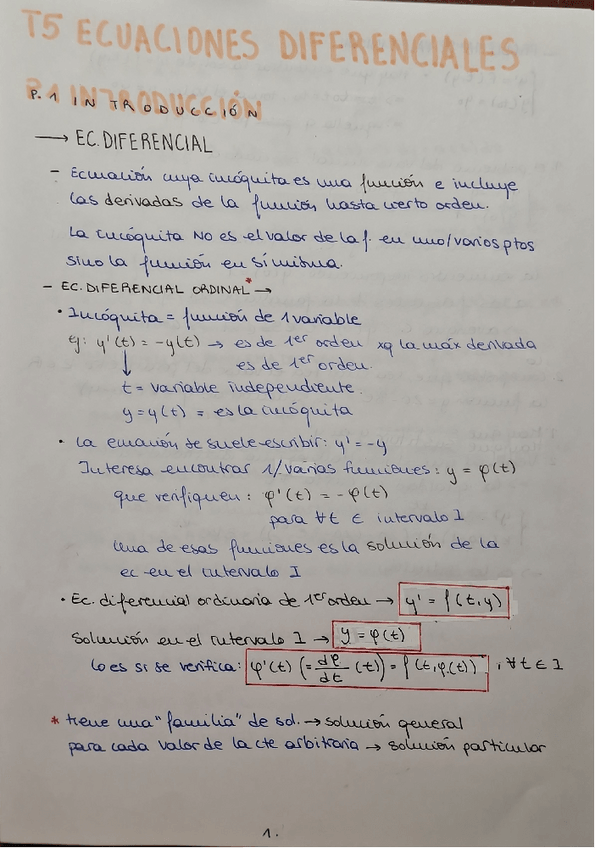 T5 ECUACIONES DIFERENCIALES
P.1 INTRODUCCIÓN
→ EC. DIFERENCIAL
- Ecuación cuya incógnita es una función e incluye
las derivadas de la función hasta cierto orden.
La incógnita NO es el valor de la f. en uno/varios ptos
sino la función en sí misma.
- EC. DIFERENCIAL ORDINAL* →
• Incógnita = función de 1 variable
eg: y'(t) = -y(t) → es de 1er orden xq la máx derivada
es de 1er orden.
↓
t = variable independiente.
y = y(t) = es la incógnita
• La ecuación se suele escribir: y' = -y
Interesa encontrar 1/varias funciones: y = φ(t)
que verifiquen: φ'(t) = -φ(t)
para ∀t ∈ intervalo I
Una de esas funciones es la solución de la
ec en el intervalo I
• Ec. diferencial ordinaria de 1er orden → y' = f(t,y)
Solución en el intervalo I → y = φ(t)
lo es si se verifica: φ'(t) (= dφ/dt (t)) = f(t, φ(t)) , ∀t ∈ I
* tiene una "familia" de sol. → solución general
para cada valor de la cte arbitraria → solución particular
1.